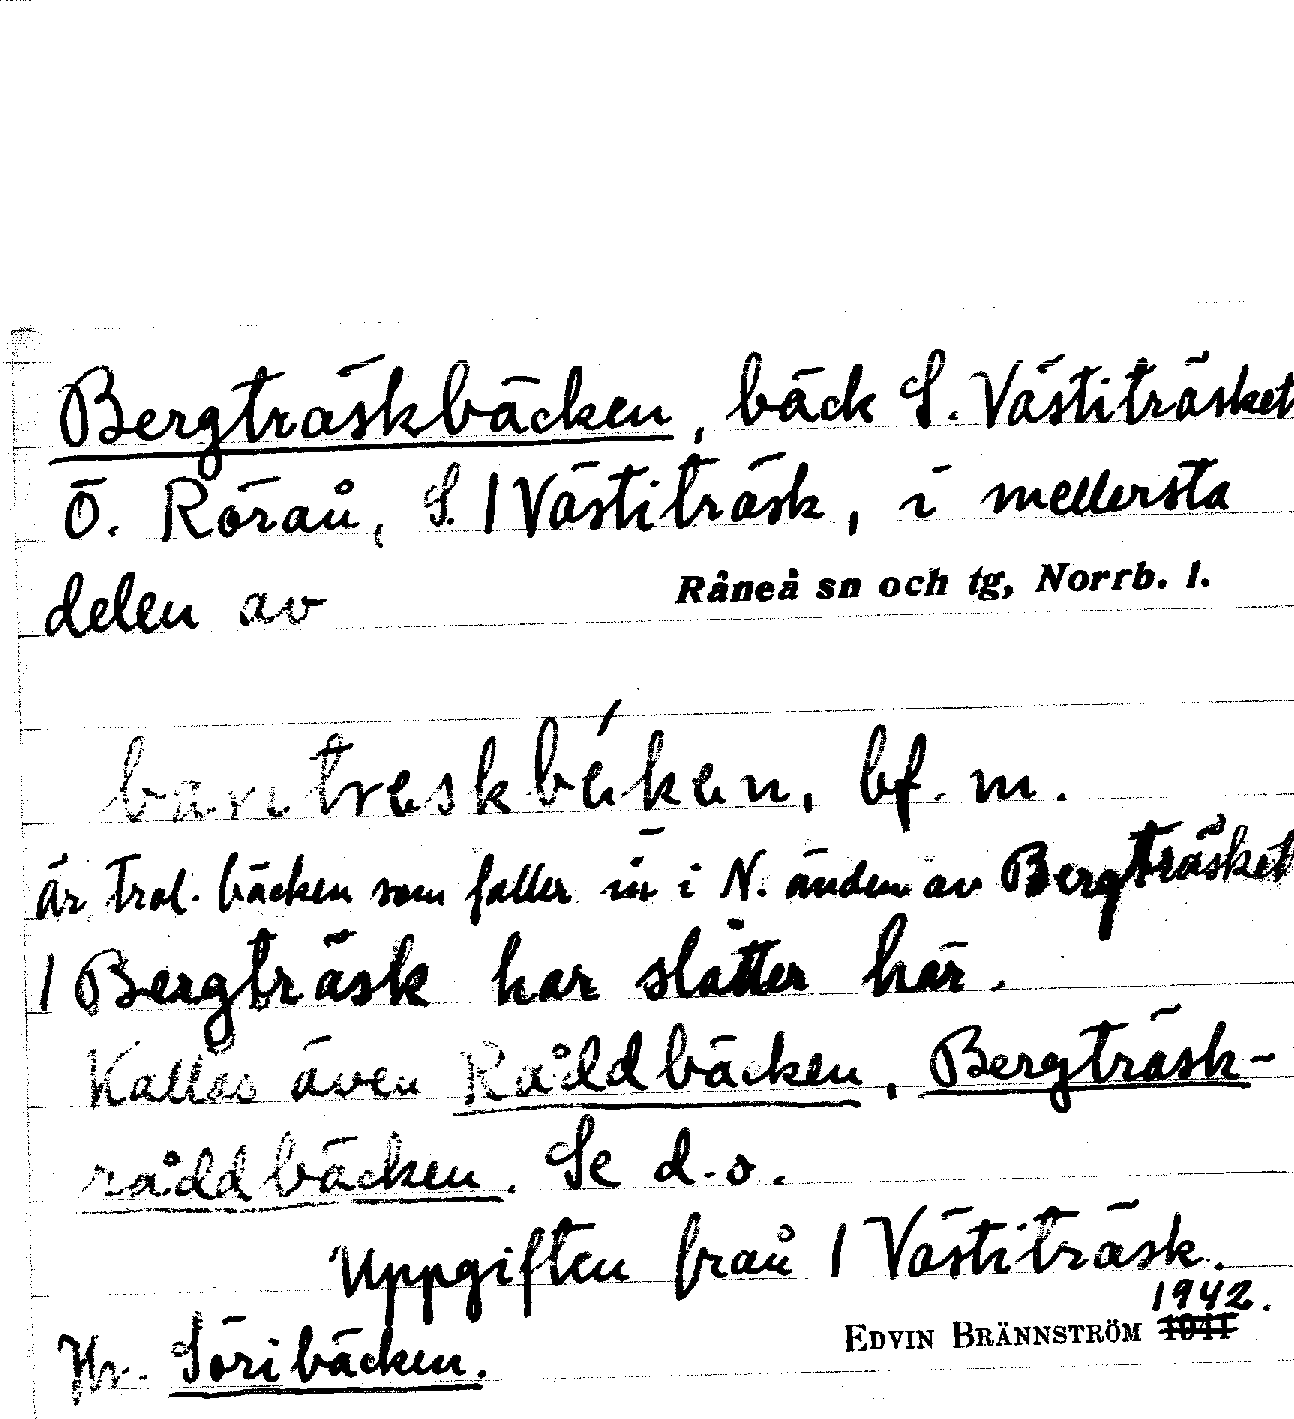 Bergträskbäcken, bäck S. Västiträsket
Ö. Rörån, S. 1 Västiträsk, i mellersta
delen av Råneå sn och tg, Norrb. l.
bf. m.
är trol. bäcken som faller in i N. änden av Bergträsket
1 Bergträsk har slåtter här.
Kallas även Råddbäcken, Bergträsk-
råddbäcken. Se d.o.
Uppgiften från 1 Västiträsk.
1942.
EDVIN BRÄNNSTRÖM 1941
Hv. Söribäcken.